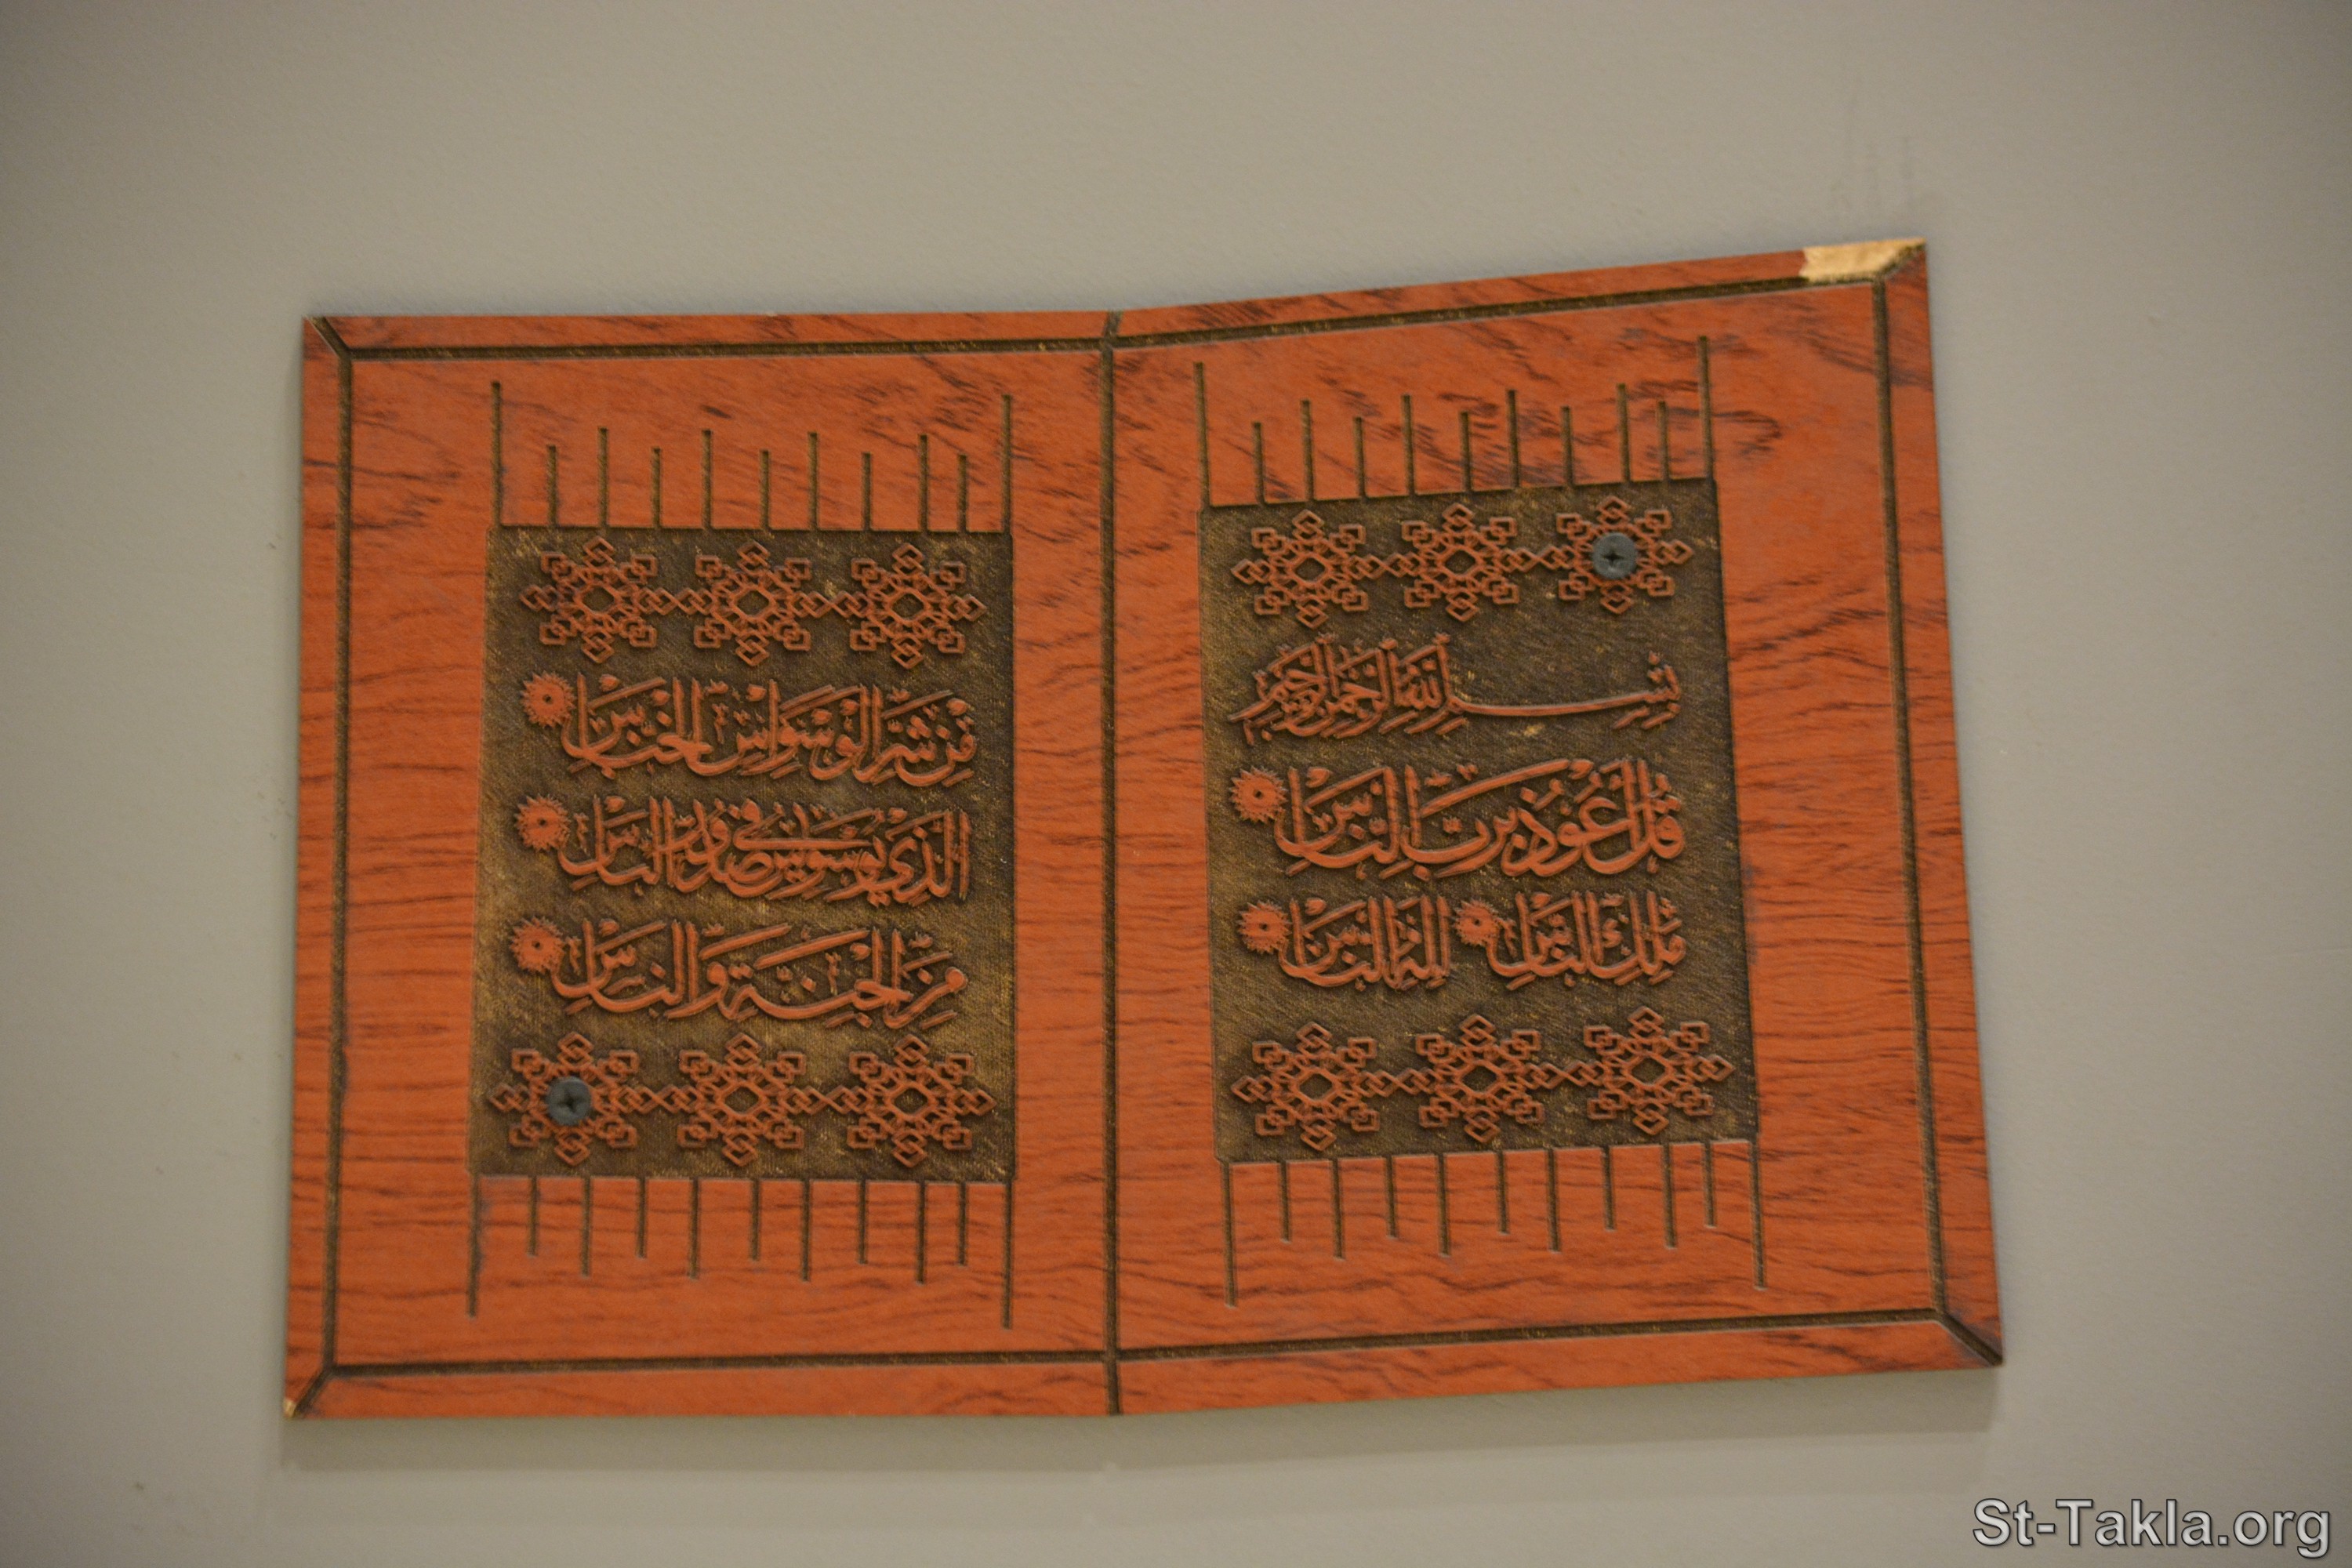 بِسْمِ اللَّهِ الرَّحْمَنِ الرَّحِيمِ
قُلْ أَعُوذُ بِرَبِّ النَّاسِ
مَلِكِ النَّاسِ إِلَهِ النَّاسِ
مِن شَرِّ الْوَسْوَاسِ الْخَنَّاسِ
الَّذِي يُوَسْوِسُ فِي صُدُورِ النَّاسِ
مِنَ الْجِنَّةِ وَالنَّاسِ
St-Takla.org